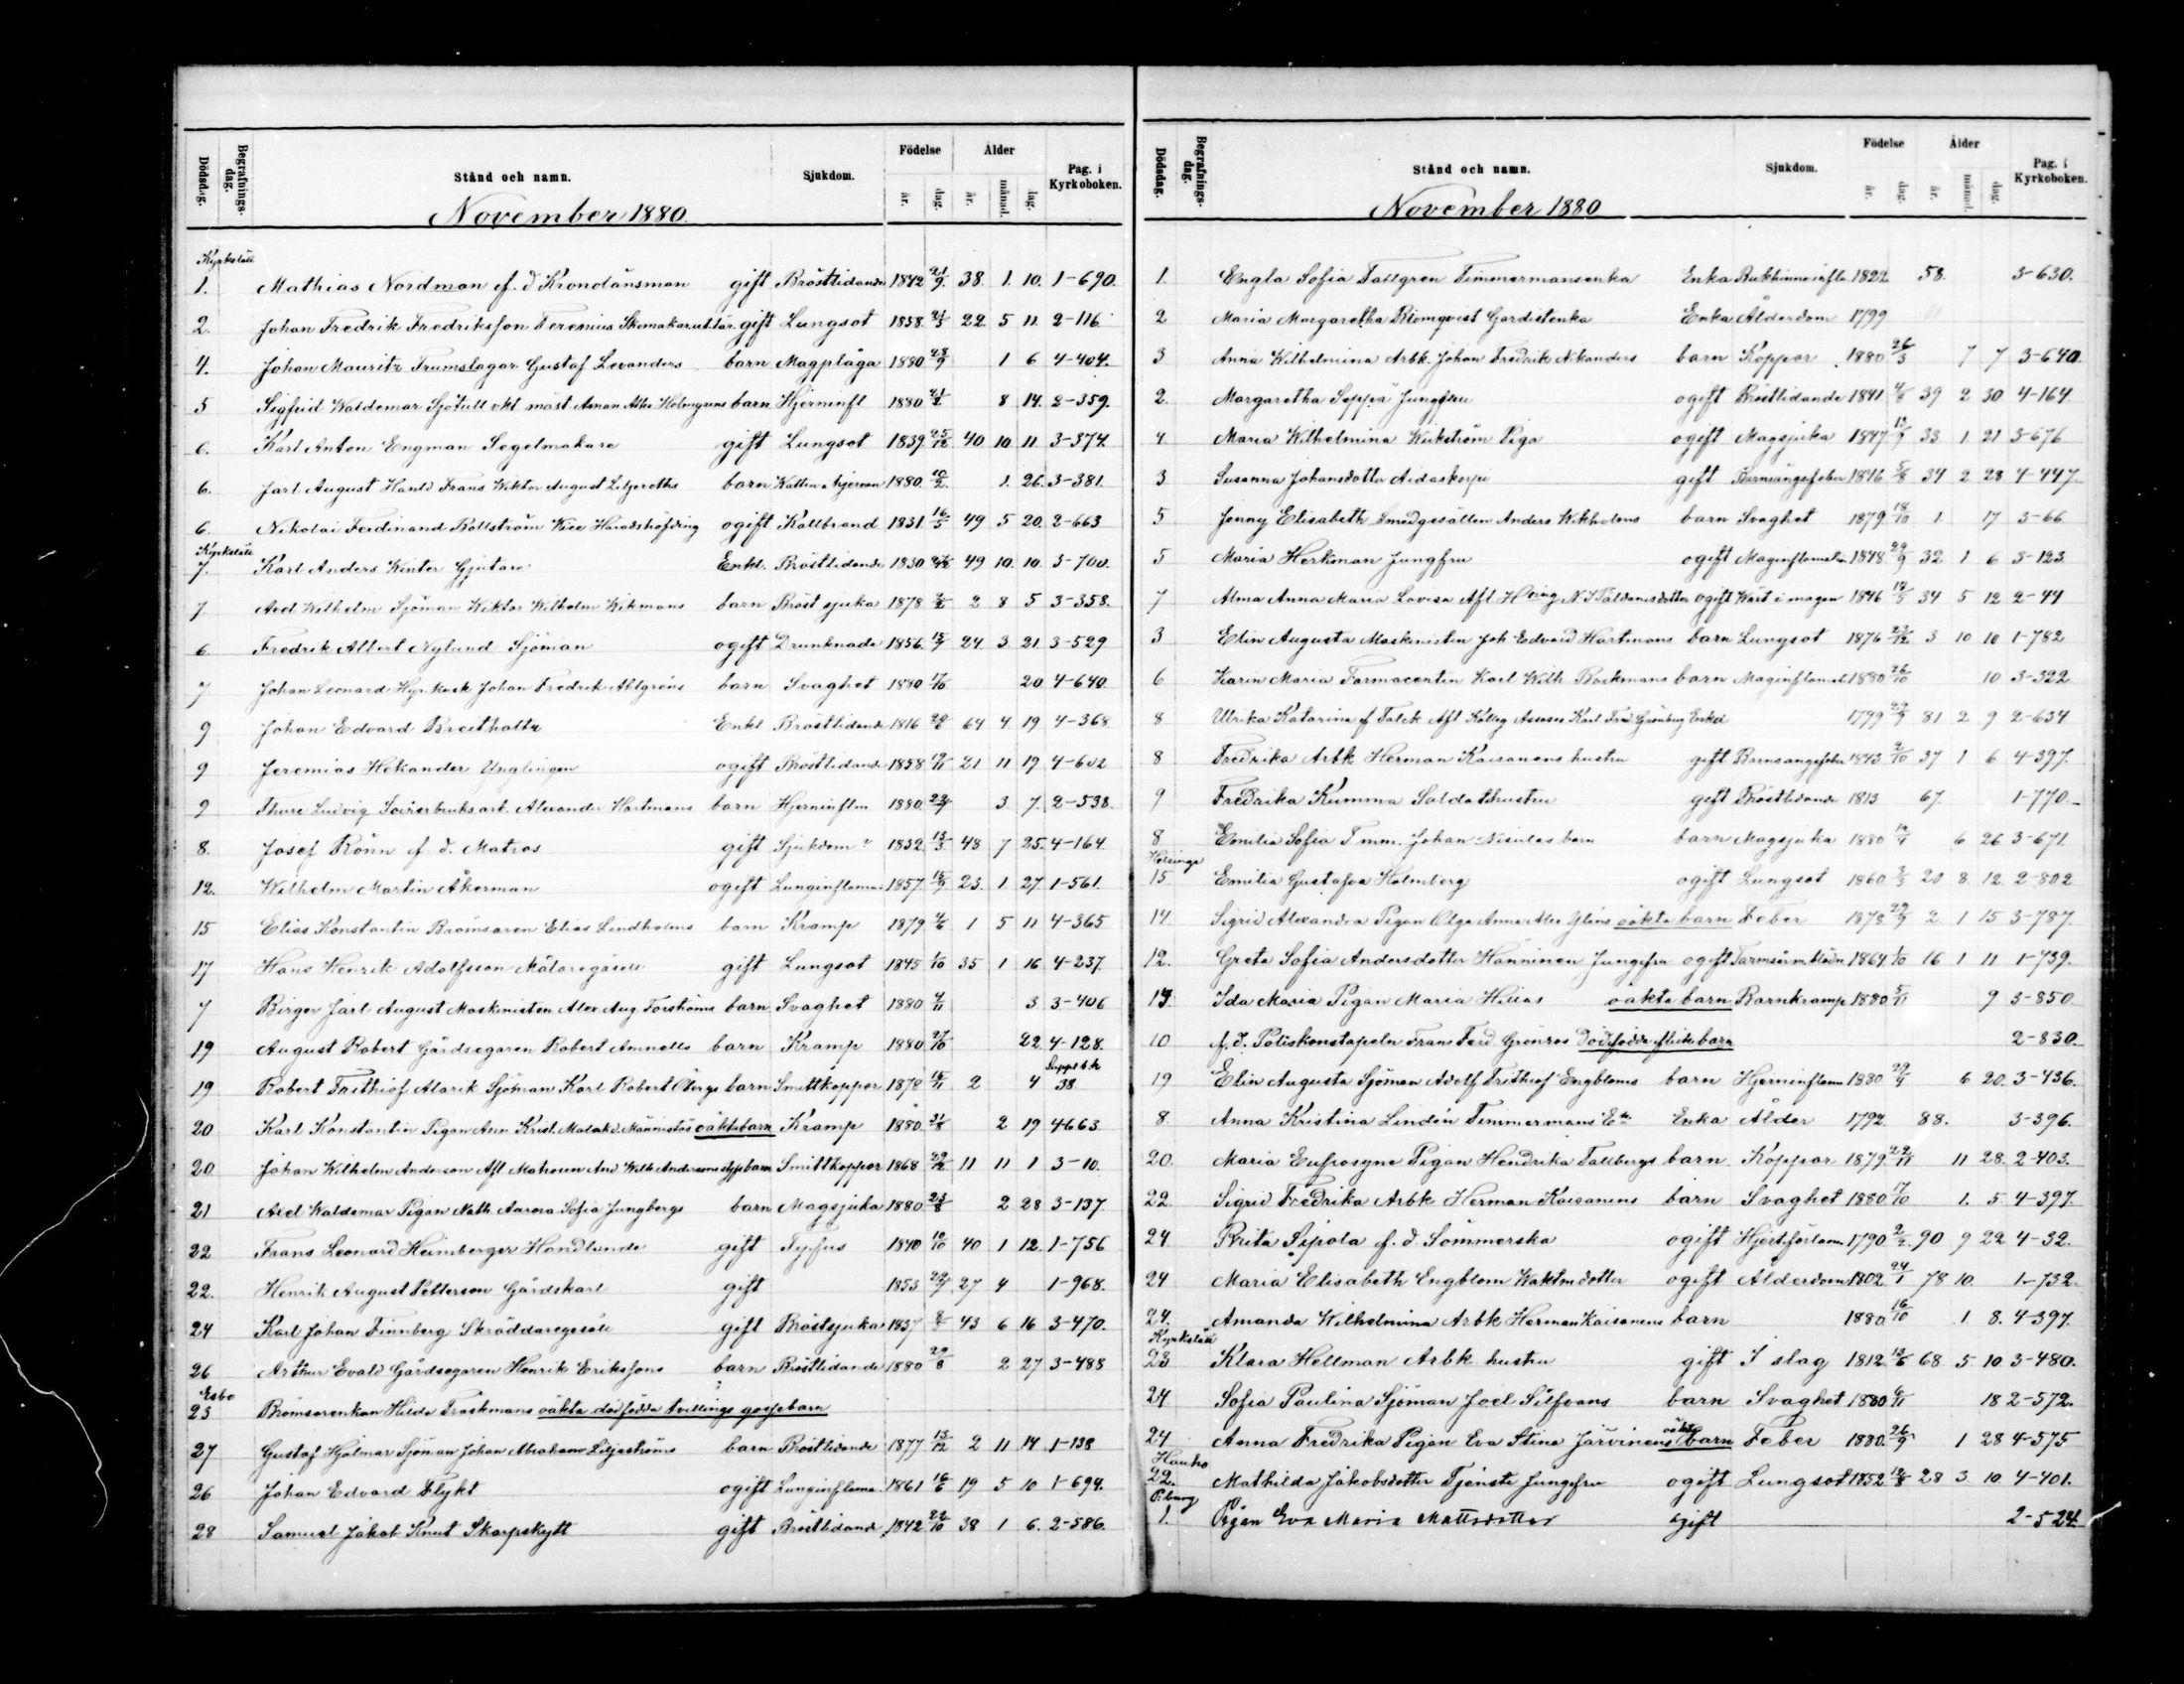 Dödsdag. Begrafnings-dag. Stånd och namn. Sjukdom. Födelse år. dag. Ålder år. månad. dag. Pag. i Kyrkoboken.
November 1880.
Kyrkslätt
1. Mathias Nordman f. d Krondänsman gift Bröstlidande 1842 21/9 38. 1. 10. 1-690.
2. Johan Fredrik Fredriksson Ferenius Skomakareut.lär. gift Lungsot 1858 21/5 22. 5 11. 2-116.
4. Johan Mauritz Trumslagar Gustaf Levanders barn Magplåga 1880 28/9 1 6 4-404.
5 Sigfrid Waldemar Sjötull vkt mäst Aman Alex Holmgrens barn Hjerninfl 1880 8 14. 2-359.
6. Karl Anton Engman Segelmakare gift Lungsot 1839 25/12 40 10 11 3-374.
6. Jarl August Hantl Frans Viktor August Liljeroths barn Watten i hjernan 1880. 1. 26. 3-381
6. Nikolai Ferdinand Kallström Vice Häradshöfding ogift Kallbrand 1831 16/5 49 5 20. 2-663
Kyrkslätt
7. Karl Anders Winter Gjutare Enkl. Bröstlidande 1830 49 10. 10. 3-700.
7. Axel Wilhelm Sjöman Wiktor Wilhelm Wikmans barn Bröst sjuka 1878 2 8 5 3-358.
6 Fredrik Albert Nylund Sjöman ogift Drunknade 1856. 15/7 24. 3 21. 3-529
7 Johan Leonard Hyrkusk Johan Fredrik Ahlgréns barn Svaghet 1880 17/10 20 4-640.
9 Johan Edvard Breitholtz Enkl Bröstlidande 1816 64 4 19 4-368
9 Jeremias Hekander Ynglingen ogift Bröstlidande 1858 21 11 19 4-602
9 Thure Ludvig Sockerbruksarb. Alexander Hartmans barn Hjerninflm 1880 3 7. 2-538.
8. Josef Rönn f. d. Matros gift Sjukdom? 1832 13/3 48 7 25. 4-164
12. Wilhelm Martin Åkerman ogift Lunginflama. 1857. 15/9 23. 1. 27. 1-561.
15 Elias Konstantin Bromsaren Elias Lindholms barn Kramp 1879 4/6 1 5 11 4-365
17 Hans Henrik Adolfsson Målaregäsell gift Lungsot 1845 1/10 35 1 16 4-237.
7 Birger Jarl August Maskinisten Alex Aug. Forsströms barn Svaghet 1880 4/11 3 3-406
19 August Robert Gårdsegaren Robert Amnells barn Kramp 1880 27/10 22 4-128.
19 Robert Frithiof Alarik Sjöman Karl Robert Öbergs barn Smittkoppor 1878 15/11 2 4 Suppl b.k 38
20 Karl Konstantin Pigan Ann Krist. Matilda Männistös oäkta barn Kramp 1880 31/8 2 19 4663
20 Johan Wilhelm Anderson Afl Matroun And Wilh Andersons styfbarn Smittkoppor 1868 29/12 11 11 1 3-10.
21 Axel Waldemar Pigan Nath. Aurora Sofia Jungbergs barn Magsjuka 1880 23/8 2 28 3-137
22 Frans Leonard Heimberger Handlande gift Tyfus 1840 10/10 40 1 12. 1-756
22. Henrik August Petterson Gårdskarl gift 1853 22/7 27 4 1-968.
24 Karl Johan Finnberg Skräddaregesäll gift Bröstsjuka 1837 8/5 43 6 16 3-470.
26 Arthur Evald Gårdsegaren Henrik Erikssons barn Bröstlidande 1880 29/8 2 27 3-488
Esbo
23 Bromsarenkan Hilda Träskmans oäkta dödfödda tvillings gossebarn
27 Gustaf Hjalmar Sjöman Johan Abraham Liljeströms barn Bröstlidande 1877 13/12 2 11 14 1-138
26 Johan Edvard Flykt ogift Lunginflama 1861 16/6 19 5 10 1-694.
28 Samuel Jakob Knut Skarpskytt gift Bröstlidande 1842 22/10 38 1 6. 2-586.
Dödsdag. Begrafnings-dag. Stånd och namn. Sjukdom. Födelse år. dag. Ålder år. månad. dag. Pag. i Kyrkoboken.
November 1880
1. Engla Sofia Tallgren Timmermansenka Enka Bukhinneinfla 1822 58. 3-630.
2 Maria Margaretha Blomqvist Gardistenka Enka Ålderdom 1799
3 Anna Wilhelmina Arbk. Johan Fredrik Nikanders barn Koppor 1880 26/3 7 7 3-640.
2. Margaretha Seppä Jungfru ogift Bröstlidande 1841 4/8 39 2 30 4-164
4. Maria Wilhelmina Wickström Piga ogift Magsjuka 1847 13/9 33 1 21 3-676
3 Susanna Johansdotter Aidaskorpi gift Barnsängsfeber 1846 5/8 34 2 28 4-447
5 Jenny Elisabeth Smedgesällen Anders Wikholms barn Svaghet 1879 18/10 1. 17 3-66
5 Maria Herkman Jungfru ogift Maginflamation 1848 29/9 32 1 6 3-123
7 Alma Anna Maria Lovisa Afl. Hring N J Paldanisdotter ogift Wärt i magen 1846 34 5 12 2-44
3 Elin Augusta Maskinisten Joh Edvard Hartmans barn Lungsot 1876 23/12 3 10 10 1-782
6 Karin Maria Farmaceuten Karl Wilh. Backmans barn Maginflamat 1880 26/10 10 3-322
8 Ulrika Katarina f Falck Afl Kolleg Assesor Karl Fred Grönberg Enka 1799 29/9 81 2 9 2-634
8 Fredrika Arbk Herman Kaisanens hustru gift Barnsängsfeber 1843 2/10 37 1 6 4-397.
9 Fredrika Kumma Soldathustru gift Bröstlidande 1813 67. 1-770.
8 Emilia Sofia Timm. Johan Nisulas barn barn Magsjuka 1880 6 26 3-671
Helsinge
15 Emilia Gustafva Holmberg ogift Lungsot 1860 3/3 20 8. 12. 2-802
14. Sigrid Alexandra Pigan Olga Anna Alex Gläns oäkta barn Feber 1878 29/9 2. 1 15 3-787.
12. Greta Sofia Andersdotter Hänninen Jungfru ogift 1864 1/10 16 1 11 1-739.
13 Ida Maria Pigan Maria Hillas oäkta barn Barnkramp 1880 5/11 9 3-850
10 f. d. Poliskonstapeln Frans Ferd Grönros Dödfödda flickebarn 2-830.
19 Elin Augusta Sjöman Adolf Frithiof Engbloms barn Hjerninflam 1880 29/4 6 20. 3-436.
8. Anna Kristina Lindén Timmermans Eka Enka Ålder 1792 88. 3-396.
20. Maria Eufrosyne Pigan Hendrika Tallbergs barn Koppor 1879 22/11 11 28. 2-403.
22. Sigrid Fredrika Arbk Herman Kaisanens barn Svaghet 1880 17/10 1. 5 4-397.
24 Brita Sipola f. d. Sömmerska ogift Hjertförlam 1790 2/2 90 9 22 4-32.
24 Maria Elisabeth Engblom Waktmdotter ogift Ålderdom 1802 24/1 78 10. 1-732.
24. Amanda Wilhelmina Arbk Herman Kaisanens barn 1880 16/10 1 8. 4-397.
Kyrkslätt
23 Klara Hellman Arbk hustru gift I slag 1812 13/6 68 5 10 3-480.
24 Sofia Paulina Sjöman Joel Silfvans barn Svaghet 1880 6/11 18 2-572.
24 Anna Fredrika Pigan Eva Stina Järvinens oäkta barn Feber 1880. 26/9 1 28 4-575
Hauho
22. Mathilda Jakobsdotter Tjenste Jungfru ogift Lungsot 1852 12/8 28 3 10 4-401.
1. Pigan Eva Maria Mattsdotter Gift 2-524.